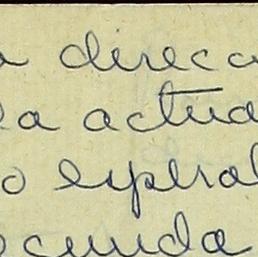 a direcc
la actua
o espera
ecunda